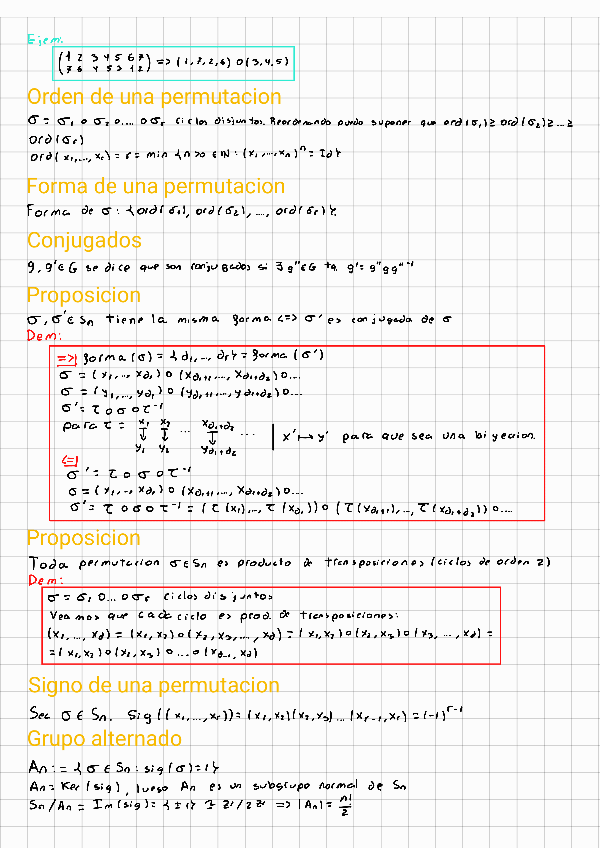 Ejem.
(1 2 3 4 5 6 7
7 6 4 5 3 1 2) => (1,7,2,6) o (3,4,5)
Orden de una permutacion
σ = σ₁ o σ₂ o.... o σr ciclos disjuntos. Reordenando puedo suponer que ord(σ₁) ≥ ord(σ₂) ≥ ... ≥
ord(σr)
ord(x₁,...,xr) = r = min {n>0 ∈ ℕ : (x₁,...,xn)ⁿ = Id}
Forma de una permutacion
Forma de σ : {ord(σ₁), ord(σ₂), ..., ord(σr)}.
Conjugados
g, g' ∈ G se dice que son conjugados si ∃ g'' ∈ G tq. g' = g'' g g''⁻¹
Proposicion
σ, σ' ∈ Sn tiene la misma forma <=> σ' es conjugada de σ
Dem:
=>| forma(σ) = {d₁,..., dr} = forma(σ')
σ = (x₁,..., xd₁) o (xd₁+₁,..., xd₁+d₂) o....
σ = (y₁,..., yd₁) o (yd₁+₁,..., yd₁+d₂) o....
σ' = τ o σ o τ⁻¹
para τ = x₁ x₂ ... xd₁+d₂
↓ ↓ ... ↓ ... | x' ↦ y' para que sea una biyecion.
y₁ y₂ yd₁+d₂
<=|
σ' = τ o σ o τ⁻¹
σ = (x₁,..., xd₁) o (xd₁+₁,..., xd₁+d₂) o....
σ' = τ o σ o τ⁻¹ = (τ(x₁),..., τ(xd₁)) o (τ(xd₁+₁),..., τ(xd₁+d₂)) o....
Proposicion
Toda permutacion σ ∈ Sn es producto de transposiciones (ciclos de orden 2)
Dem:
σ = σ₁ o... o σr ciclos disjuntos
Veamos que cada ciclo es prod. de transposiciones:
(x₁,..., xd) = (x₁,x₂) o (x₂,x₃,..., xd) = (x₁,x₂) o (x₂,x₃) o (x₃,..., xd) =
= (x₁,x₂) o (x₂,x₃) o ... o (xd-₁, xd)
Signo de una permutacion
Sea σ ∈ Sn. Sig((x₁,...,xr)) = (x₁,x₂)(x₂,x₃)...(xr-₁,xr) = (-1)ʳ⁻¹
Grupo alternado
An := {σ ∈ Sn : sig(σ) = 1}
An = Ker(sig), luego An es un subgrupo normal de Sn
Sn/An = Im(sig) = {±1} ≃ ℤ/2ℤ => |An| = n!/2